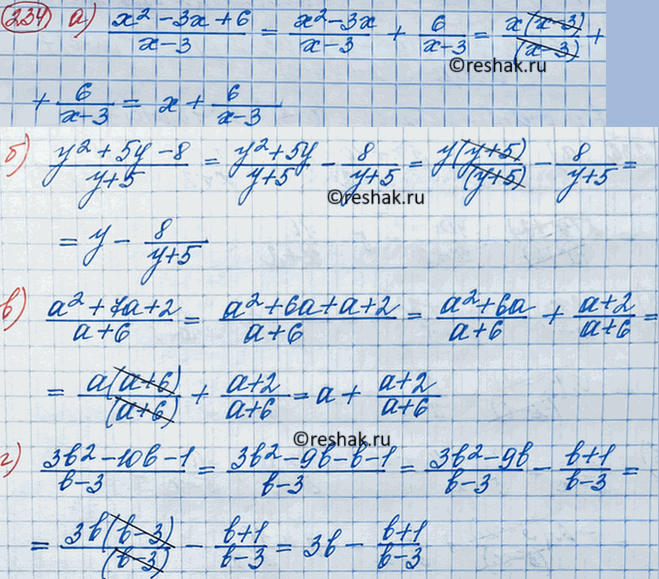 234 а) (x² − 3x + 6)/(x−3) = (x² − 3x)/(x−3) + 6/(x−3) = x(x−3)/(x−3) +
©reshak.ru
+ 6/(x−3) = x + 6/(x−3)
б) (y² + 5y − 8)/(y+5) = (y² + 5y)/(y+5) − 8/(y+5) = y(y+5)/(y+5) − 8/(y+5) =
©reshak.ru
= y − 8/(y+5)
в) (a² + 7a + 2)/(a+6) = (a² + 6a + a + 2)/(a+6) = (a² + 6a)/(a+6) + (a+2)/(a+6) =
= a(a+6)/(a+6) + (a+2)/(a+6) = a + (a+2)/(a+6)
©reshak.ru
г) (3b² − 10b − 1)/(b−3) = (3b² − 9b − b − 1)/(b−3) = (3b² − 9b)/(b−3) − (b+1)/(b−3) =
= 3b(b−3)/(b−3) − (b+1)/(b−3) = 3b − (b+1)/(b−3)